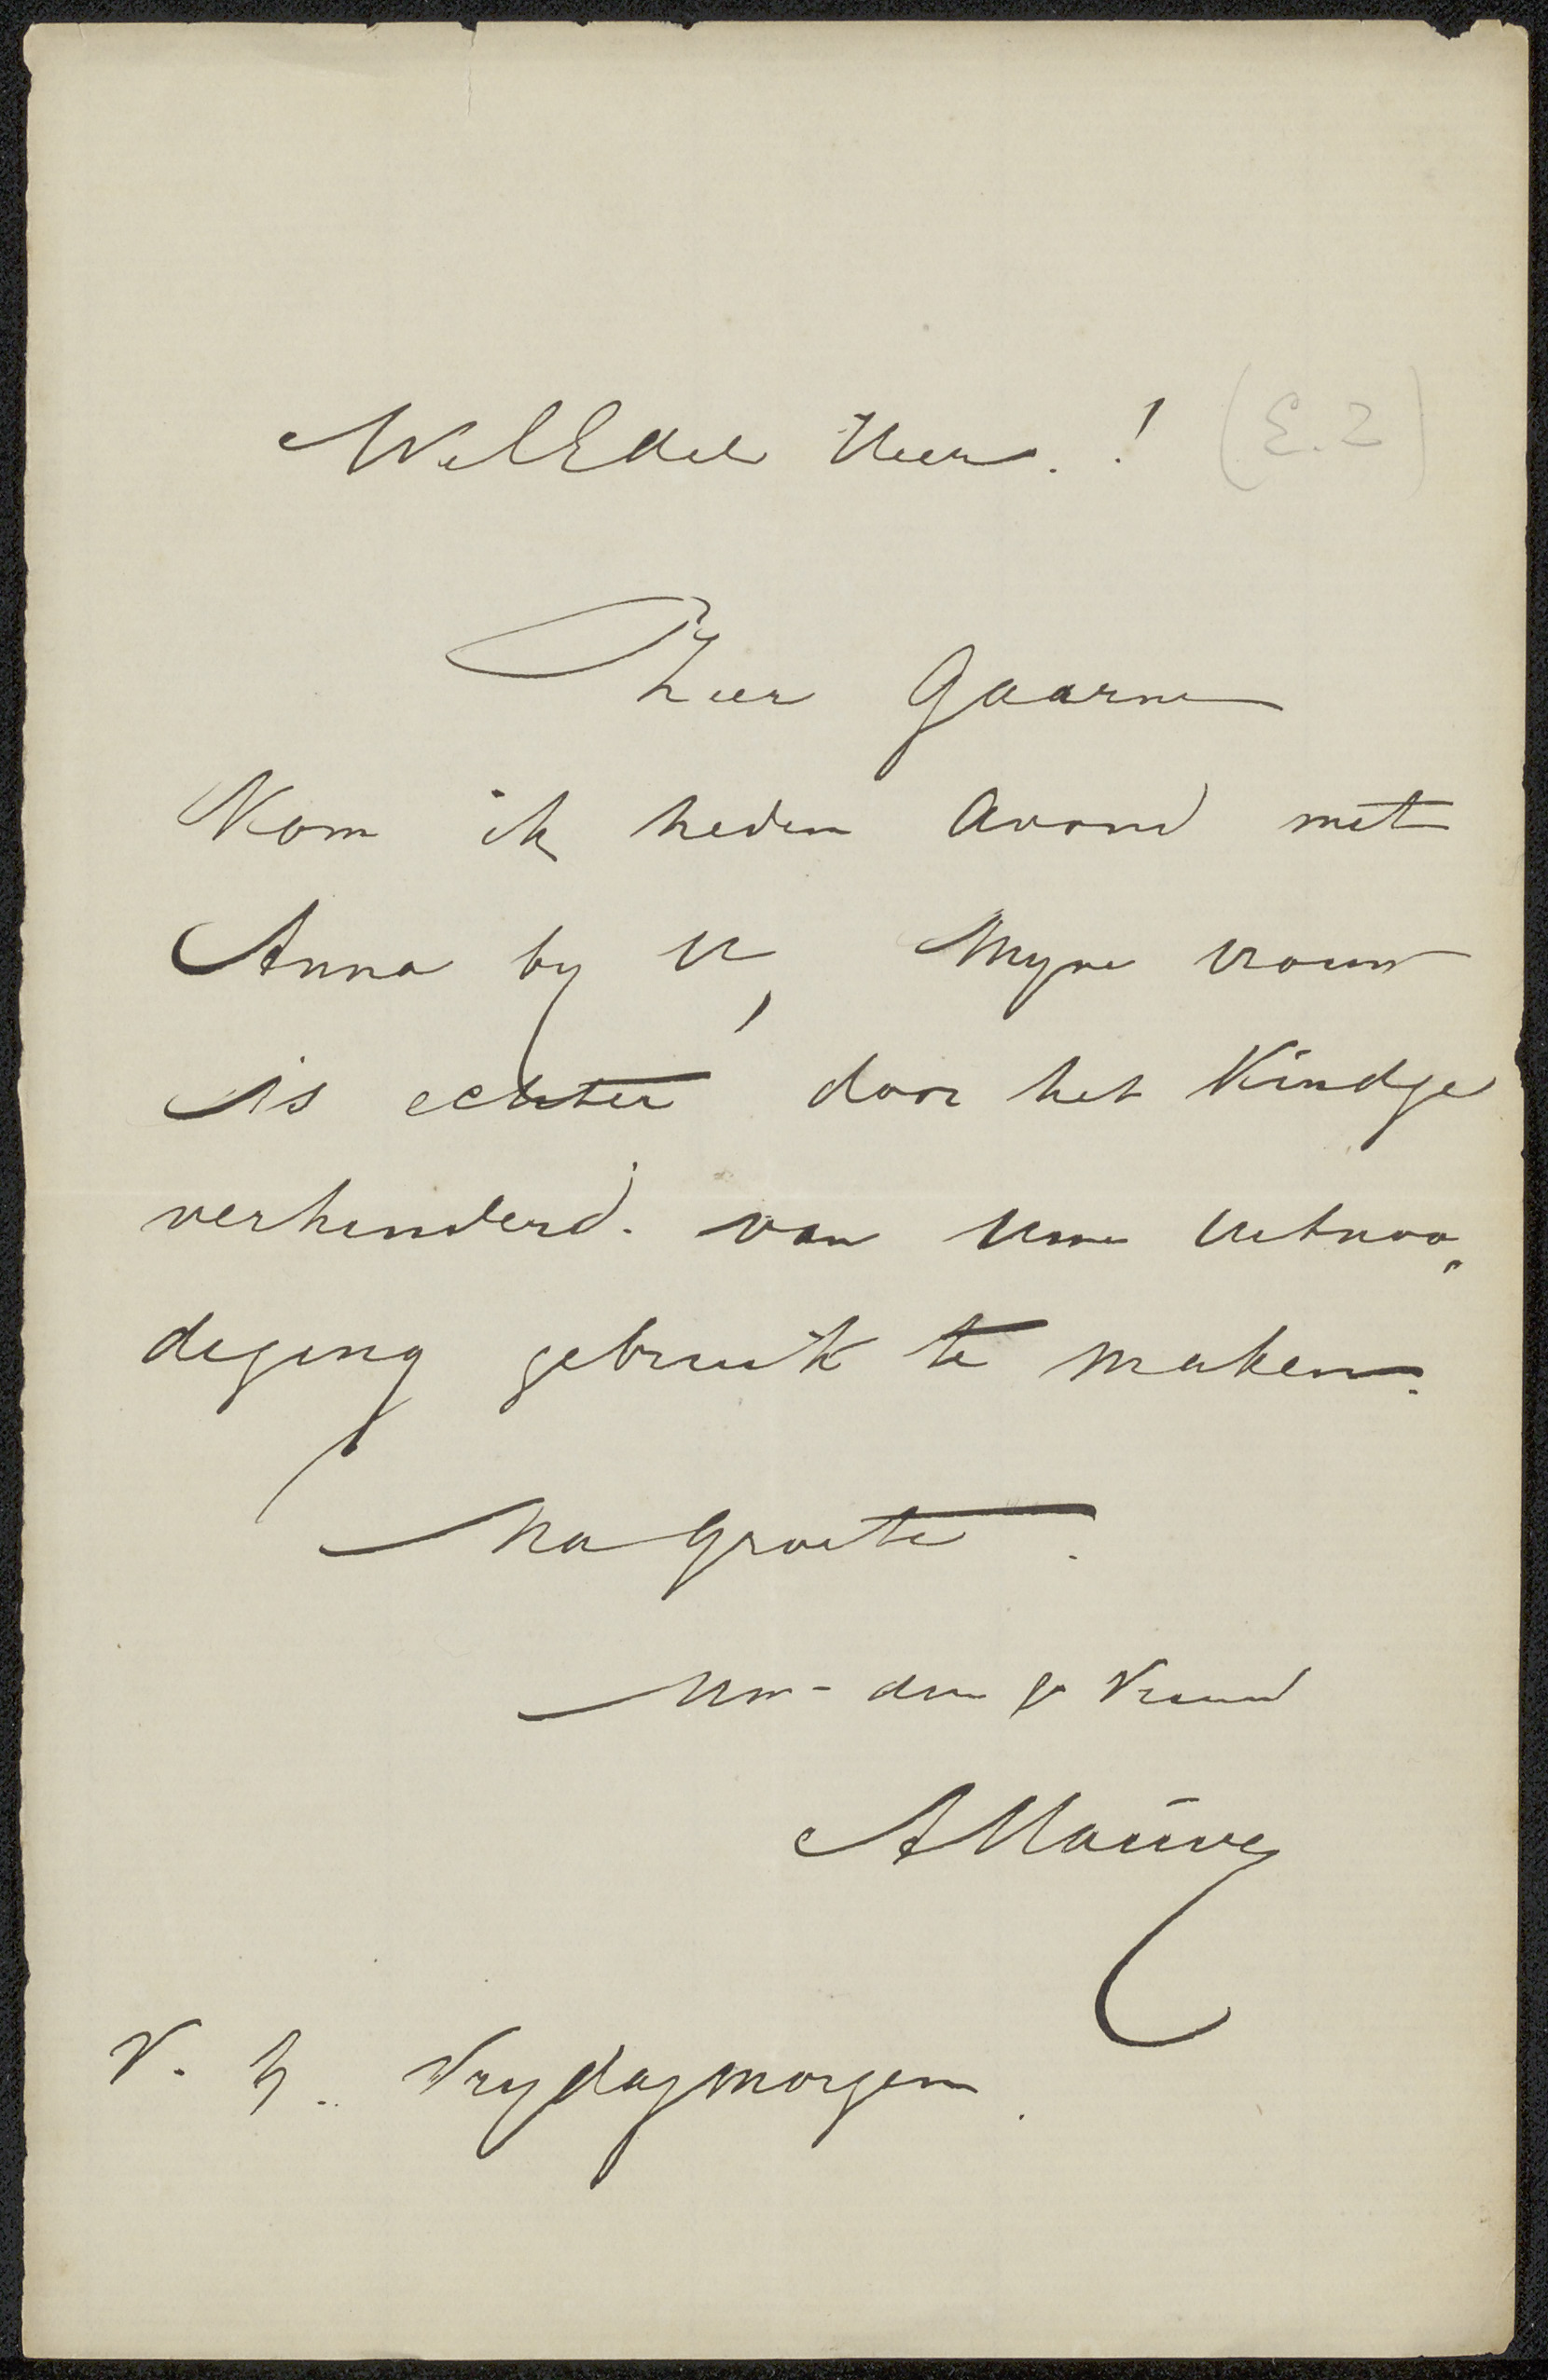 WelEdele Heer. ! (E.2)
Zeer Gaarne
Kom ik heden avond met
Anna by U, Myne vrouw
is echter door het Kindje
verhinderd. van Uwe Uitnoo„
diging gebruik te maken.
Na Groete.
Uw - dw Vriend
AMauve
V. h. Vrydagmorgen.